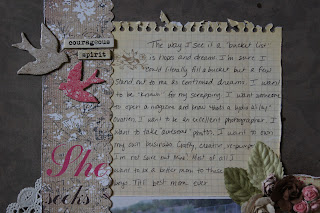 courageous
spirit
The way I see it a "bucket list"
is hopes and dreams. I'm sure I
could literally fill a bucket but a few
stand out to me as confirmed dreams. I want
to be "known" for my scrapping. I want someone
to open a magazine and know "that's a
creation. I want to be an excellent photographer. I
want to take awesome photos. I want to own
my own business. Crafty, creative,
I'm not sure but mine. Most of all I
want to be a better mom to these
boys. Tall best mom ever.
She
seeks